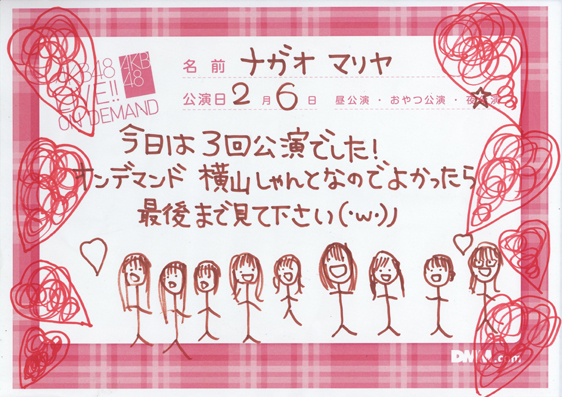 AKB48
LIVE!!
ON DEMAND
AKB
48
名前 ナガオ マリヤ
公演日 2月6日 昼公演・おやつ公演・夜☆演
今日は3回公演でした!
オンデマンド 横山しゃんとなのでよかったら
最後まで見て下さい(･ω･)ノ
DMM.com